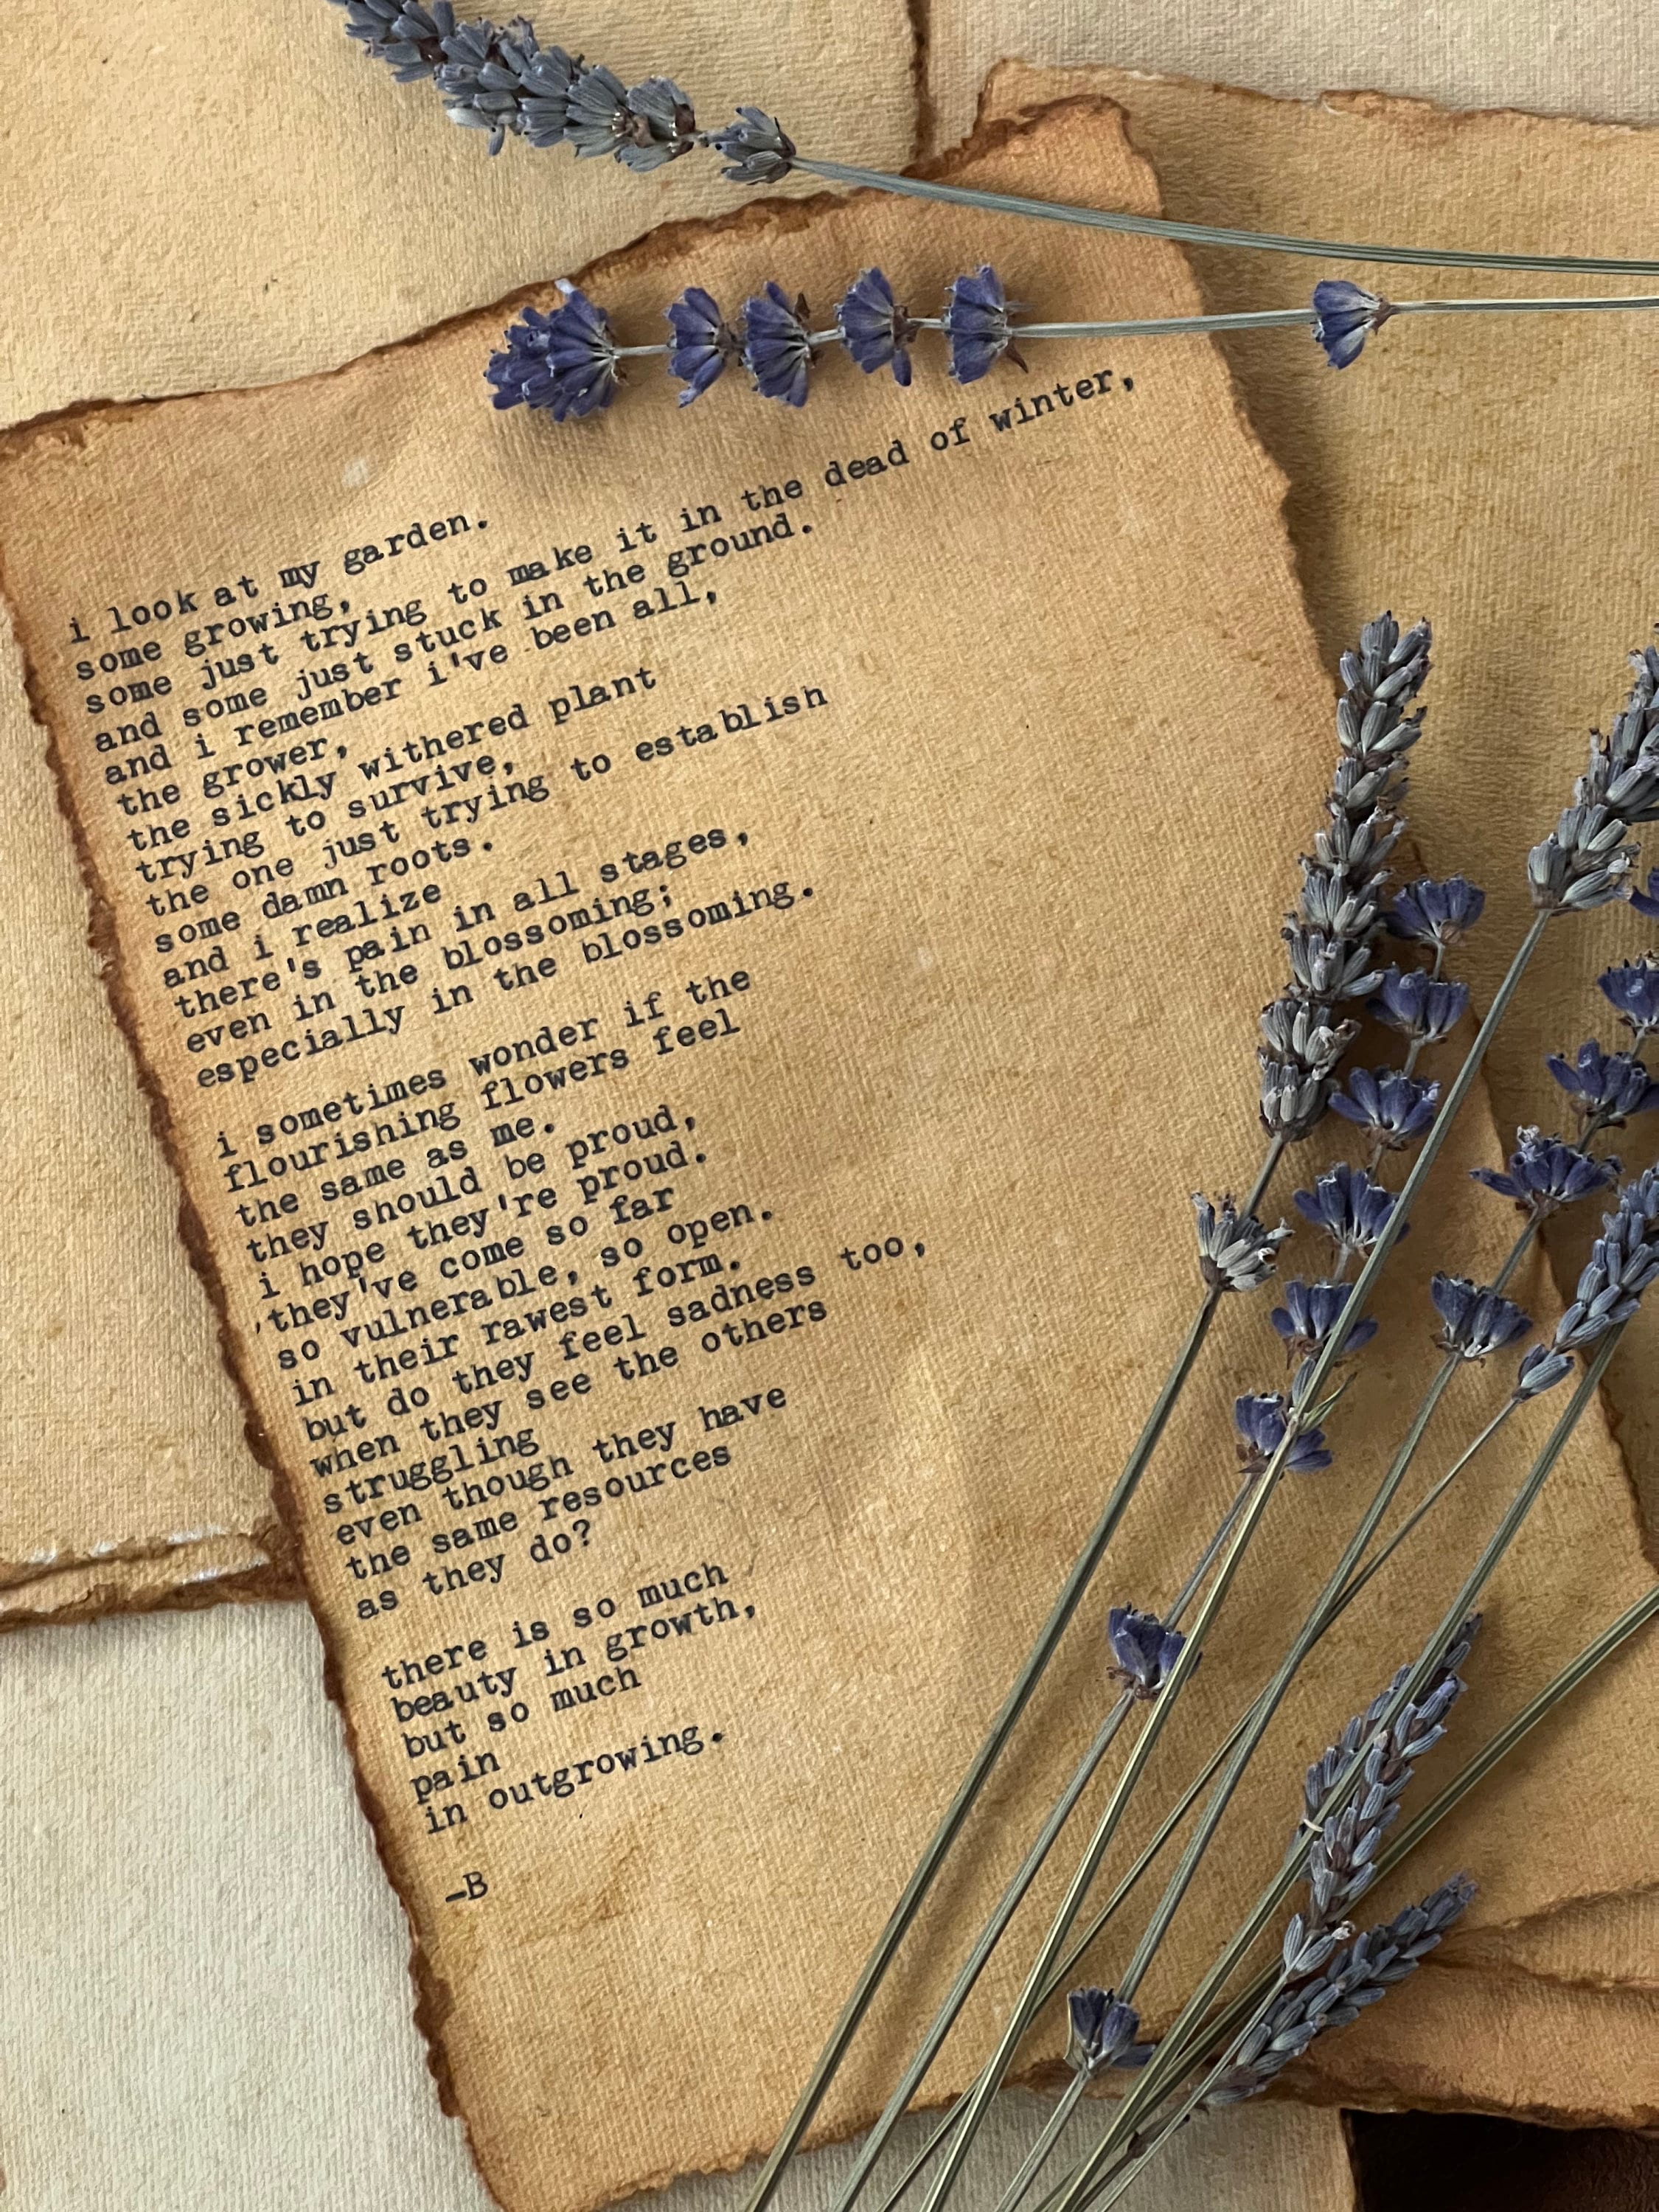 i look at my garden.
some growing,
some just trying to make it in the dead of winter,
and some just stuck in the ground.
and i remember i've been all,
the grower,
the sickly withered plant
trying to survive,
the one just trying to establish
some damn roots.
and i realize
there's pain in all stages,
even in the blossoming;
especially in the blossoming.
i sometimes wonder if the
flourishing flowers feel
the same as me.
they should be proud,
i hope they're proud.
they've come so far
so vulnerable, so open.
in their rawest form.
but do they feel sadness too,
when they see the others
struggling
even though they have
the same resources
as they do?
there is so much
beauty in growth,
but so much
pain
in outgrowing.
-B